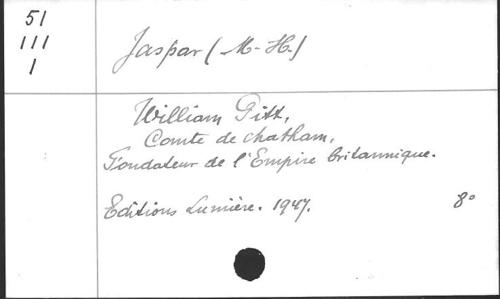 51
111
1
Jaspar (M.-H.)
William Pitt,
Comte de Chatham,
Fondateur de l'Empire britannique.
Editions Lumière. 1947. 8°